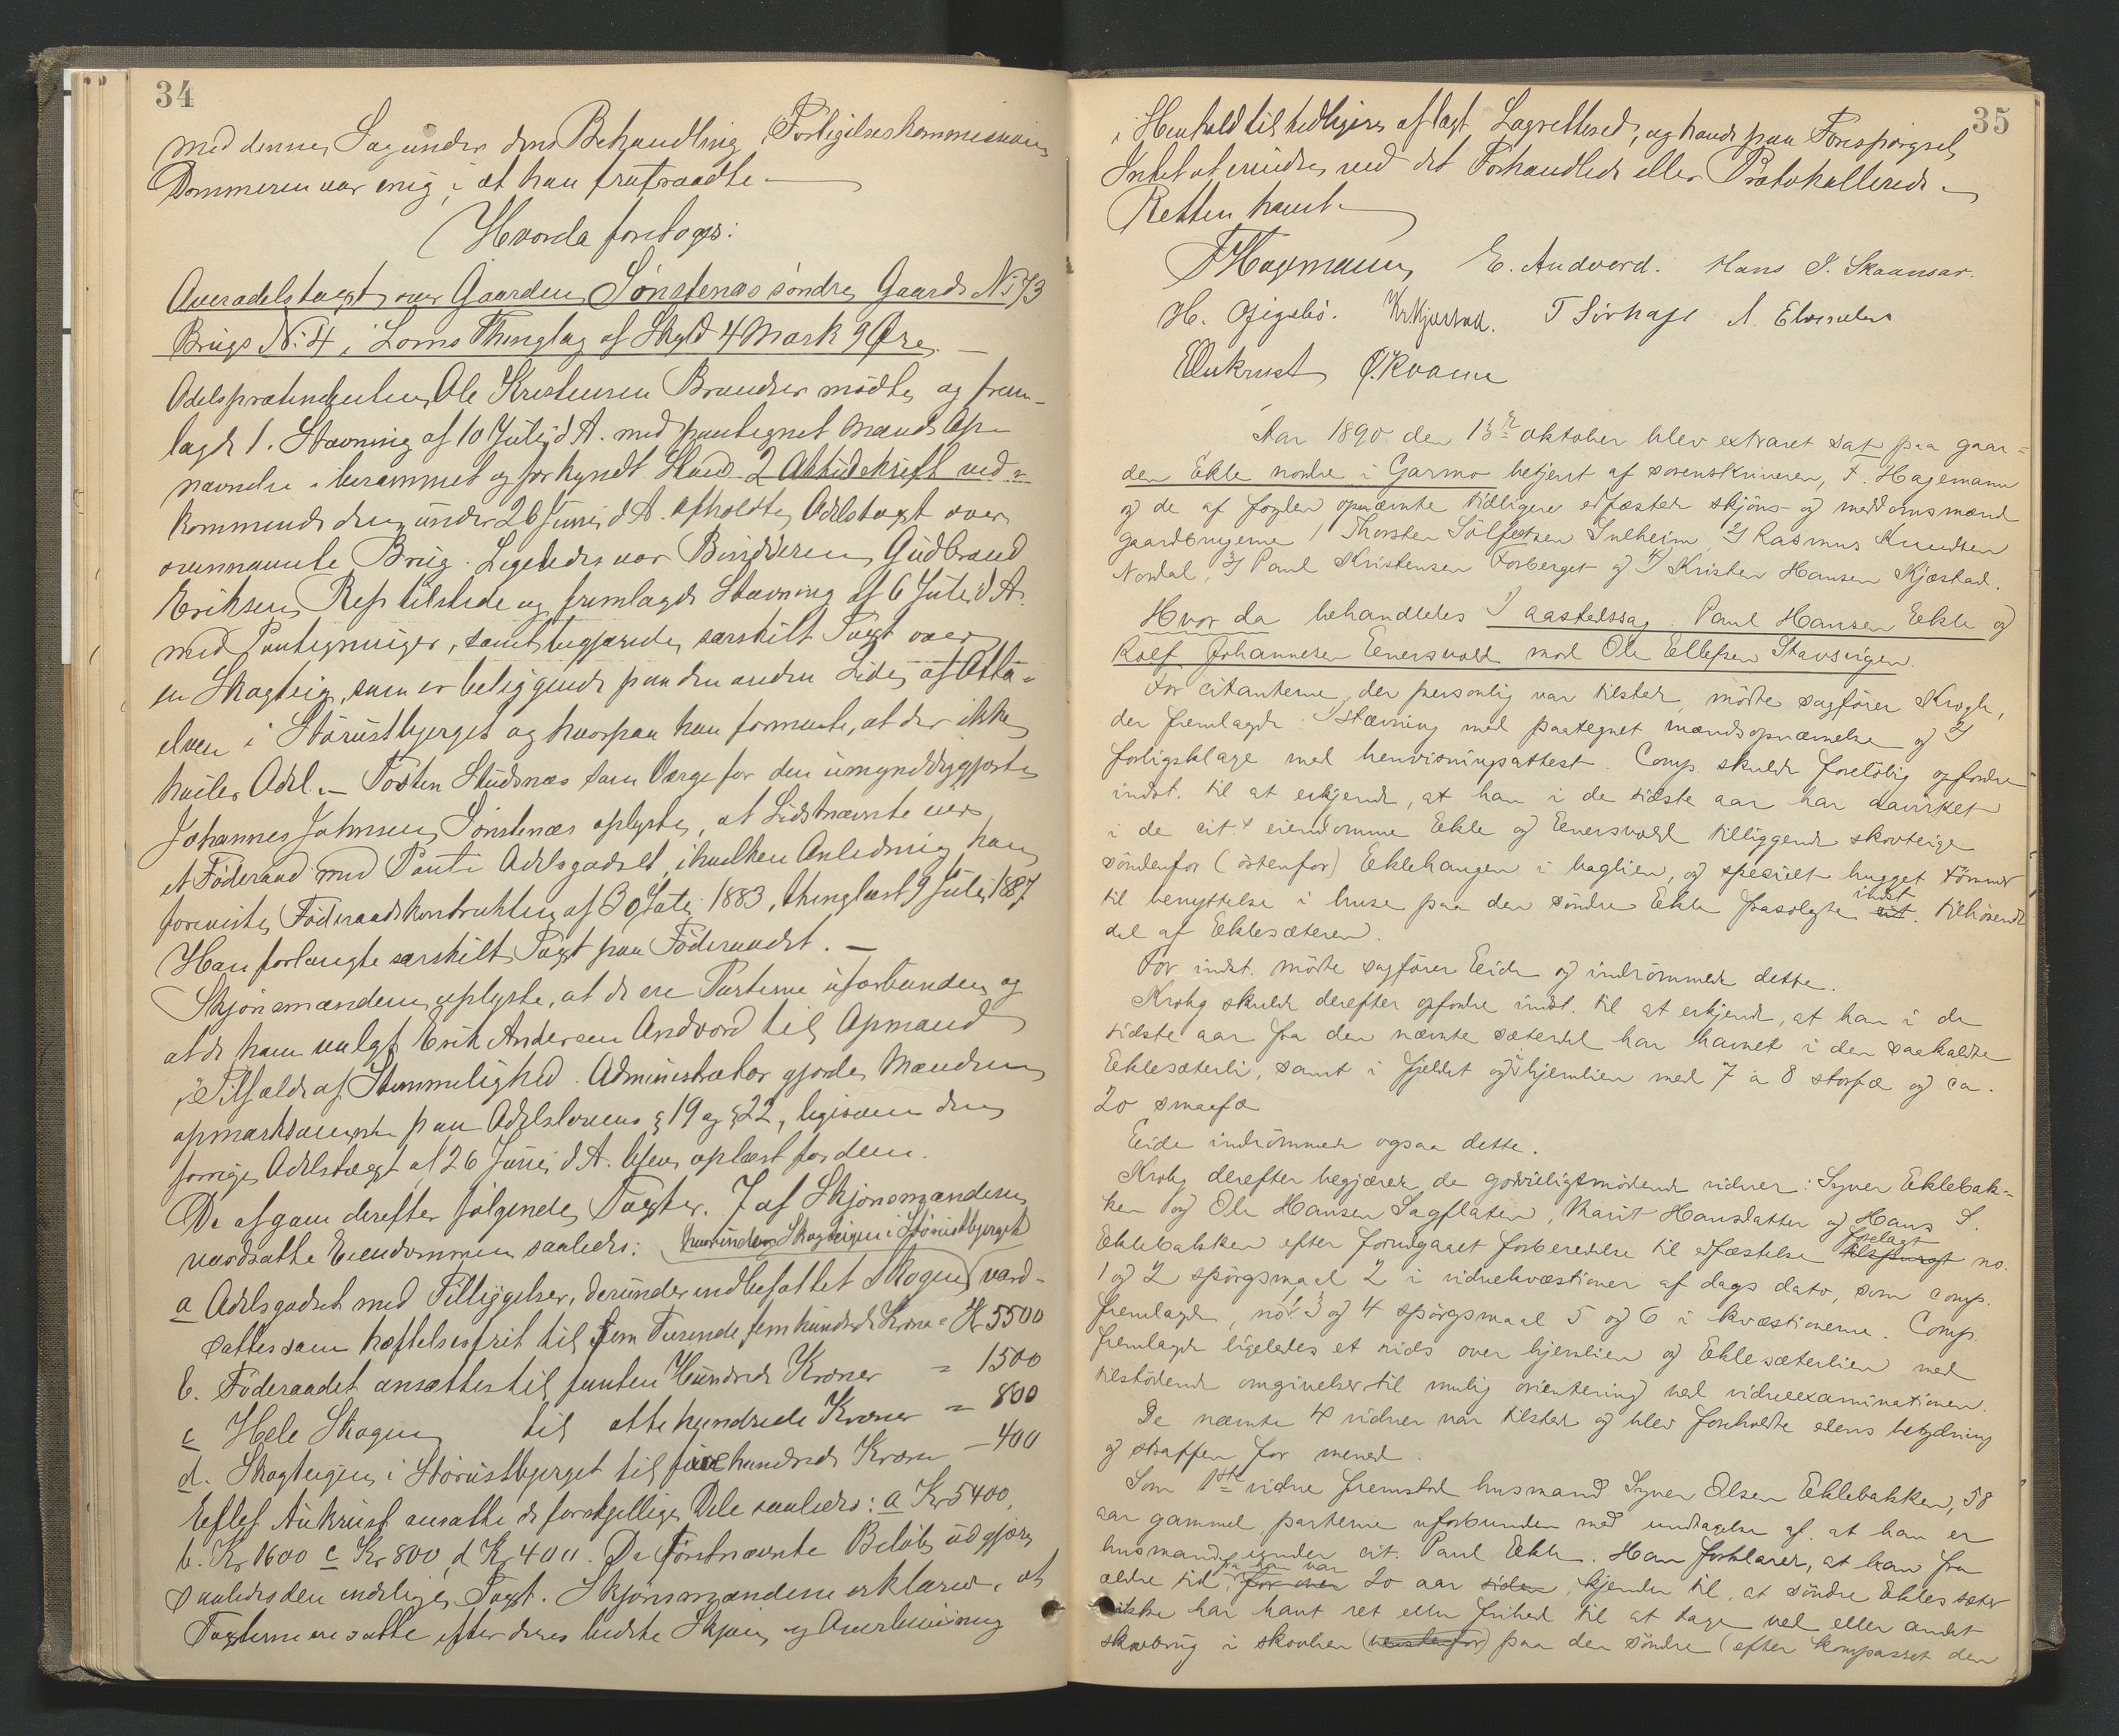 34
med denne Sag under dens Behandling i Forligelseskommission.
Dommeren var enig i at han fratraadte.
Hvorda foretoges:
Overodelstaxt over Gaarden Sønstenæs søndre Gaards No 73
Brugs No: 4 i Loms Thinglag af Skyld 4 Mark 9 Øre. —
Odelsprætendenten Ole Kristensen Brandser mødte og frem-
lagde 1. Stævning af 10 Juli d. A. med paategnet Mænds Op-
nævnelse, berammet og forkyndt samt 2 Aktudskrift ved-
kommende den under 26 Juni d. A. afholdte Odelstaxt over
ovennævnte Brug. Ligeledes var Besidderen Gudbrand
Eriksen Ref tilstede og fremlagde Stævning af 6 Juli d. A.
med Paategninger, samt begjærede særskilt Taxt over
en Skogteig, som er beliggende paa den anden Side af Otta-
elven i Størüstbjerget og hvorpaa han formente, at der ikke
hviler Odel. — Tosten Studsnæs som Værge for den umyndiggjorte
Johannes Johnsen Sønstenæs oplyste, at Sidstnævnte ei
et Føderaad med Pant i Odelsgodset, i hvilken Anledning han
foreviste Føderaadskontrakten af 30 Juli 1883, thinglæst 9 Juli 1887
Han forlangte særskilt Taxt paa Føderaadet. —
Skjønsmændene oplyste, at de ere Parterne uforbundne og
at de have valgt Erik Andersen Andvord til Opmand
i Tilfælde af Stemmelighed. Administrator gjorde Mændene
opmærksomme paa Odelslovens § 19 og § 22, ligesom den
forrige Odelstaxt af 26 Juni d. A. blev oplæst for dem.
De afgave derefter følgende Taxter. 7 af Skjønsmændene
værdsatte Eiendommen saaledes: hvorunder Skogteigen i Størüstbjerget
a Odelsgodset med Tilliggelser, derunder indbefattet Skogen værd-
sattes som heftelsesfrit til fem Tusende femhundrede Kroner = Kr 5500
b. Føderaadet ansættes til femten Hundrede Kroner = 1500
c Hele Skogen til otte hundrede Kroner = 800
d. Skogteigen i Størüstbjerget til fire hundrede Kroner — 400
Eflef Aukrust ansatte de forskjellige Dele saaledes: a Kr 5400,
b. Kr 1600 c Kr 800, d Kr 400. De førstnævnte Beløb udgjøre
saaledes den endelige Taxt. Skjønsmændene erklærede, at
Taxterne ere satte efter deres bedste Skjøn og Overbevisning
35
i Henhold til tidligere aflagt Lagrettesed, og havde paa Forespørgsel
Intet at erindre ved det Forhandlede eller Protokollerede.
Retten hævet.
F Hagemann E. Andvord. Hans P. Skaansar.
H. Gjeilo. Kr Kjæstad. T Sørhage A.
E Aukrust O. Kvame
Aar 1890 den 13de oktober blev extraret sat paa gaar=
den Ekle nordre i Garmo betjent af sorenskriveren, F. Hagemann
og de af fogden opnævnte tidligere edfæstede skjøns- og meddomsmænd
gaardbrugerne 1/ Thorsten Sølfestsen Sulheim, 2/ Rasmus Knudsen
Nordal, 3/ Paul Kristensen Forberget og 4/ Kristen Hansen Kjæstad.
Hvor da behandledes 1/ aastedssag: Paul Hansen Ekle og
Rolf Johannesen Eenersvold mod Ole Ellefsen Stavseigen.
For citanterne, der personlig var tilstede, mødte sagfører Krogh,
der fremlagde 1/ stævning med paategnet mændsopnævnelse og 2/
forligsklage med henvisningsattest. Comp. skulde foreløbig opfordre
indst. til at erkjende, at han i de sidste aar har aavirket
i de cit.s eiendomme Ekle og Eenersvold tilliggende skovteige
søndenfor (østenfor) Eklehaugen i baglien, og specielt hugget tømmer
til benyttelse i huse paa den søndre Ekle frasolgte cit. indst. tilhørende
del af Eklesæteren.
For indst. mødte sagfører Eide og indrømmede dette.
Krohg skulde derefter opfordre indst. til at erkjende, at han i de
sidste aar fra den nævnte sæterdel har havnet i den saakaldte
Eklesæterli, samt i fjeldet og i hjemlien med 7 a 8 storfæ og ca.
20 smaafæ
Eide indrømmede ogsaa dette.
Krohg derefter begjærede de godvilligtmødende vidner: Syver Eklebak=
ken og Ole Hansen Sagflaten, Marit Hansdatter og Hans S.
Eklebakken efter forudgaaet forberedelse til edfæstelse tilspurgt forelagt no.
1 og 2 spørgsmaal 2 i vidnekvæstioner af dags dato, som comp.
fremlagde, no. 1, 3 og 4 spørgsmaal 5 og 6 i kvæstionerne. Comp.
fremlagde ligeledes et rids over hjemlien og Eklesæterlien med
tilstødende omgivelser til mulig orientering ved vidneexaminationen.
De nævnte 4 vidner var tilstede og blev foreholdte edens betydning
og straffen for mened.
Som 1ste vidne fremstod husmand Syver Olsen Eklebakken, 58
aar gammel, parterne uforbunden med undtagelse af, at han er
husmand under cit. Paul Ekle. Han forklarer, at han fra
ældre tid, for over fra han var 20 aar siden, kjender til, at søndre Ekles sæter
ikke har havt ret eller frihed til at tage ved eller andet
skovbrug i skovlien (vestenfor) paa den søndre (efter kompasset den